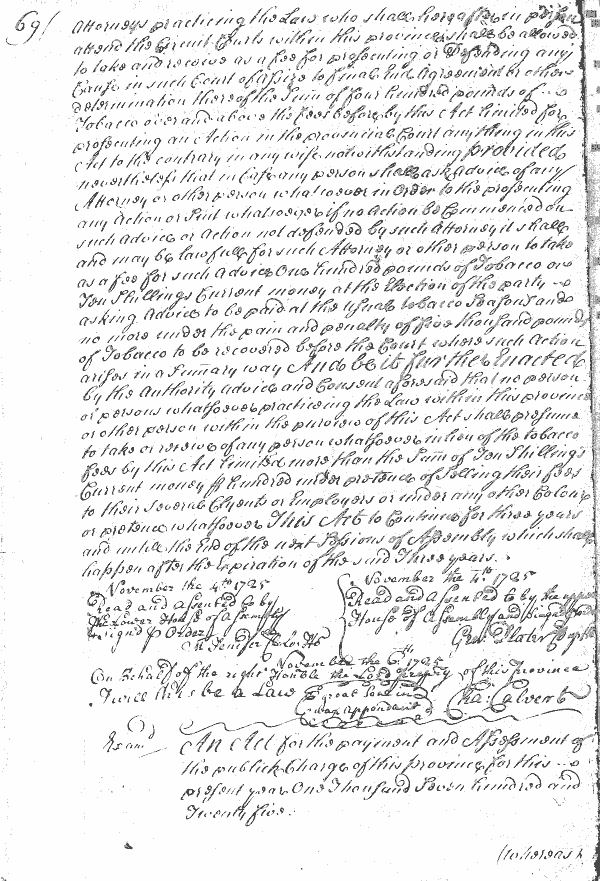 69/
Attorneys practicing the Law who shall hereafter in person
attend the Circuit Courts within this province shall be allowed
to take and receive as a fee for prosecuting or Defending any
Cause in such Court of Assize to final End Agreement or other
determination thereof the Sum of four hundred pounds of
Tobacco over and above the fees before by this Act Limited for
prosecuting an Action in the provincial Court any thing in this
Act to the contrary in any wise notwithstanding provided
nevertheless that in Case any person shall ask Advice of any
Attorney or other person whatsoever in Order to the prosecuting
any Action or Suit whatsoever if no Action be Commenced on
such Advice or Action not defended by such Attorney it shall
and may be lawfull for such Attorney or other person to take
as a fee for such Advice One hundred pounds of Tobacco or
Ten Shillings Current money at the Election of the party
asking Advice to be paid at the usual tobacco Seasons and
no more under the pain and penalty of five thousand pounds
of Tobacco to be recovered before the Court where such Action
arises in a Summary way And be it further Enacted
by the Authority Advice and Consent aforesaid that no person
or persons whatsoever practicing the Law within this province
or other person within the purview of this Act shall presume
to take or receive of any person whatsoever in lieu of the tobacco
fees by this Act Limited more than the Sum of Ten Shillings
Current money ⅌ hundred under pretence of Selling their fees
to their several Clyents or Employers or under any other Colour
or pretence whatsoever This Act to Continue for three years
and untill the End of the next Sessions of Assembly which shall
happen after the Expiration of the said Three years.
November the 4.th 1725
Read and assented to by
the Lower House of Assembly
signed ⅌ Order
M Jenifer Cl: Lo: Ho
November the 4.th 1725
Read and Assented to by the upper
House of Assembly and signed ⅌ order
November the 6.th 1725
On behalf of the right Honble the Lord Propry of this Province
I will this be a Law
Great Seal in
wax appendant
Cha: Calvert
Exam.d
An Act for the payment and Assessment of
the publick Charge of this Province for this
present year One Thousand Seven hundred and
Twenty five.
Whereas